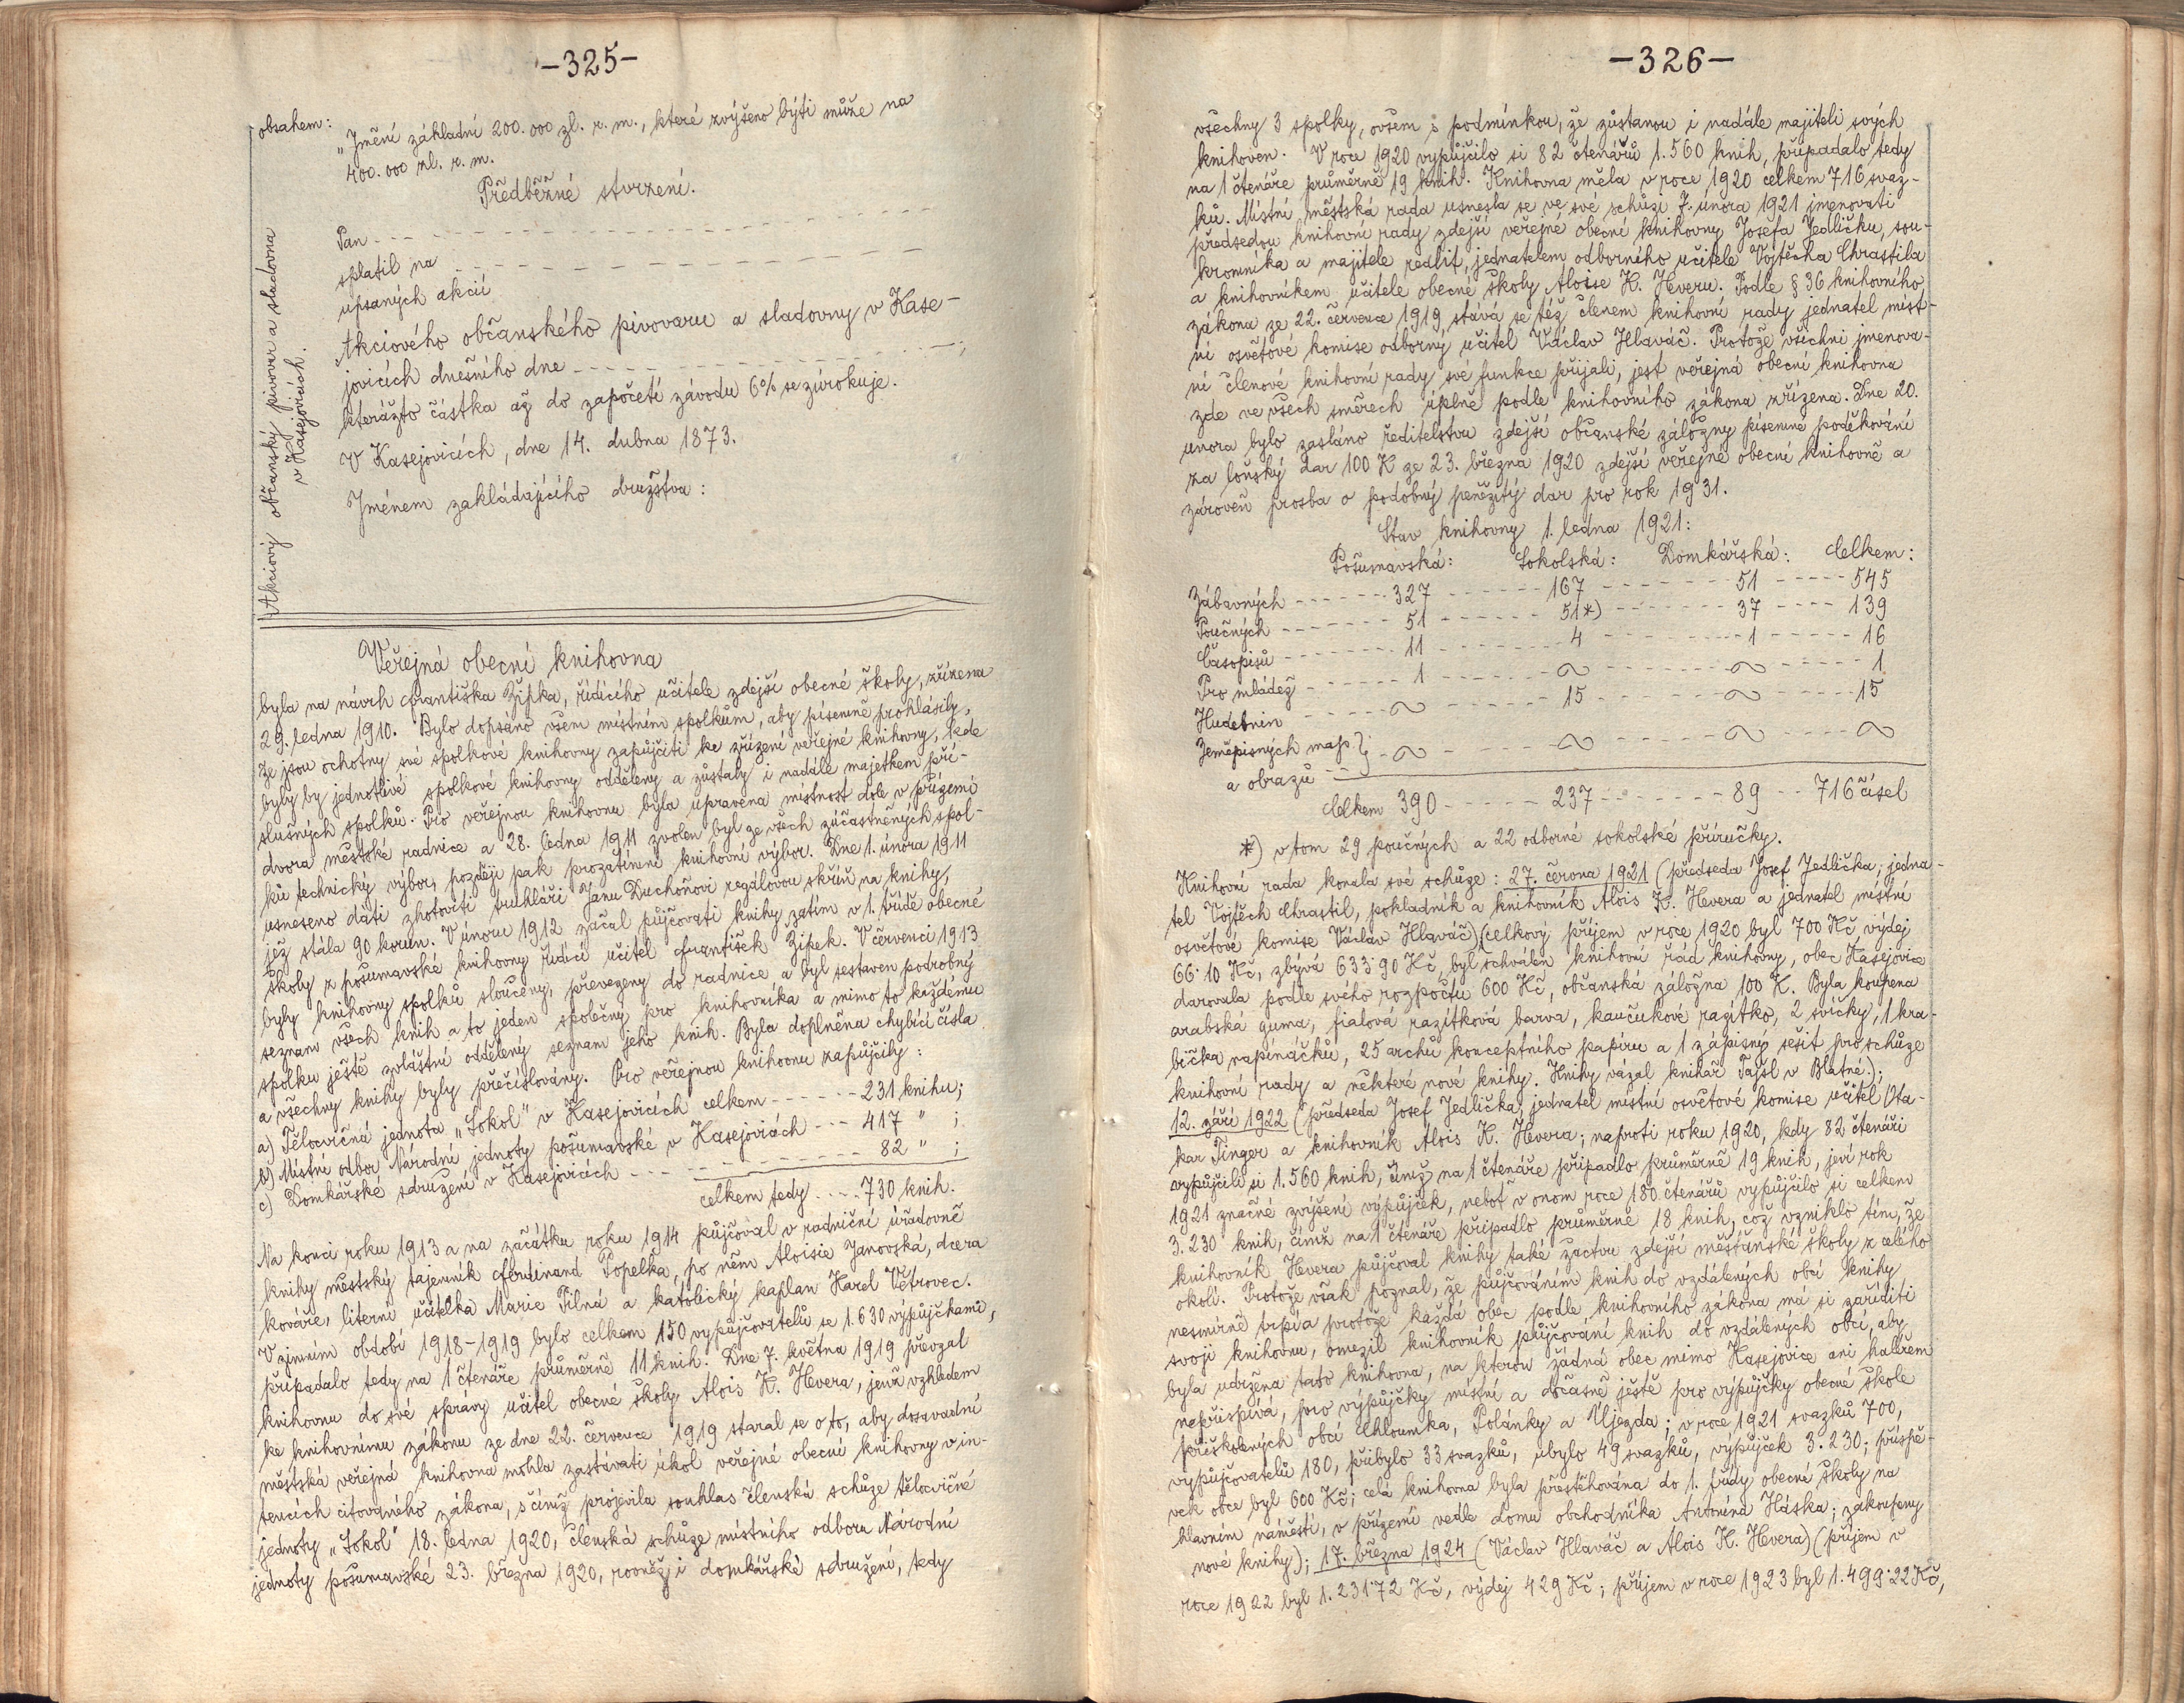 -325-
obsahem:
„Jmění základní 200.000 zl. r. m., které zvýšeno býti může na
400.000 zl. r. m.
Předběžné stvrzení.
Pan - - -
splatil na - - -
upsaných akcií
Akciového občanského pivovaru a sladovny v Kase-
jovicích dnešního dne - - - ;
kterážto částka až do započetí závodu 6% se zúrokuje.
V Kasejovicích, dne 14. dubna 1873.
Jménem zakládajícího družstva:
Akciový občanský pivovar a sladovna
v Kasejovicích.
Veřejná obecní knihovna
byla na návrh Františka Žípka, řídícího učitele zdejší obecné školy, zřízena
29. ledna 1910. Bylo dopsáno všem místním spolkům, aby písemně prohlásily,
že jsou ochotny své spolkové knihovny zapůjčiti ke zřízení veřejné knihovny, kde
byly by jednotlivé spolkové knihovny odděleny a zůstaly i nadále majetkem pří-
slušných spolků. Pro veřejnou knihovnu byla upravena místnost dole v přízemí
dvora městské radnice a 28. ledna 1911 zvolen byl ze všech zúčastněných spol-
ků technický výbor, později pak prozatímní knihovní výbor. Dne 1. února 1911
usneseno dáti zhotoviti truhláři Janu Duchoňovi regálovou skříň na knihy,
jež stála 90 korun. V únoru 1912 začal půjčovati knihy zatím v 1. třídě obecné
školy z pošumavské knihovny řídící učitel František Žípek. V červenci 1913
byly knihovny spolků sloučeny, převezeny do radnice a byl sestaven podrobný
seznam všech knih a to jeden společný pro knihovníka a mimo to každému
spolku ještě zvláštní oddělený seznam jeho knih. Byla doplněna chybící čísla
a všechny knihy byly přečíslovány. Pro veřejnou knihovnu zapůjčily:
a) Tělocvičná jednota „Sokol" v Kasejovicích celkem - - - - - - 231 knihu;
b) Místní odbor Národní jednoty pošumavské v Kasejovicích - - - 417 " ;
c) Domkářské sdružení v Kasejovicích - - - - - - - - - - - - 82 " ;
celkem tedy - - - - 730 knih.
Na konci roku 1913 a na začátku roku 1914 půjčoval v radniční úřadovně
knihy městský tajemník Ferdinand Popelka, po něm Aloisie Janovská, dcera
kováře, literní učitelka Marie Pilná a katolický kaplan Karel Větrovec.
V zimním období 1918-1919 bylo celkem 150 vypůjčovatelů se 1.630 výpůjčkami,
připadalo tedy na 1 čtenáře průměrně 11 knih. Dne 7. května 1919 převzal
knihovnu do své správy učitel obecné školy Alois K. Hevera, jenž vzhledem
ke knihovnímu zákonu ze dne 22. července 1919 staral se o to, aby dosavadní
městská veřejná knihovna mohla zastávati úkol veřejné obecní knihovny v in-
tencích citovaného zákona, s čímž projevila souhlas členská schůze tělocvičné
jednoty „Sokol" 18. ledna 1920, členská schůze místního odboru Národní
jednoty pošumavské 23. března 1920, rovněž i domkářské sdružení, tedy
-326-
všechny 3 spolky, ovšem s podmínkou, že zůstanou i nadále majiteli svých
knihoven. V roce 1920 vypůjčilo si 82 čtenářů 1.560 knih, připadalo tedy
na 1 čtenáře průměrně 19 knih. Knihovna měla v roce 1920 celkem 716 svaz-
ků. Místní městská rada usnesla se ve své schůzi 7. února 1921 jmenovati
předsedou knihovní rady zdejší veřejné obecní knihovny Josefa Jedličku, sou-
kromníka a majitele realit, jednatelem odborného učitele Vojtěcha Chrastila
a knihovníkem učitele obecné školy Aloise K. Heveru. Podle § 36 knihovního
zákona ze 22. července 1919, stává se též členem knihovní rady jednatel míst-
ní osvětové komise odborný učitel Václav Hlaváč. Protože všichni jmenova-
ní členové knihovní rady své funkce přijali, jest veřejná obecní knihovna
zde ve všech směrech úplně podle knihovního zákona zřízena. Dne 20.
února bylo zasláno ředitelstvu zdejší občanské záložny písemné poděkování
za loňský dar 100 K ze 23. března 1920 zdejší veřejné obecní knihovně a
zároveň prosba o podobný peněžitý dar pro rok 1931.
Stav knihovny 1. ledna 1921:
Pošumavská: Sokolská: Domkářská: Celkem:
Zábavných - - - - - - 327 - - - - - - 167 - - - - - - 51 - - - - - 545
Poučných - - - - - - 51 - - - - - - 51*) - - - - - - 37 - - - - 139
Časopisů - - - - - - 11 - - - - - - 4 - - - - - - 1 - - - - - 16
Pro mládež - - - - - - 1 - - - - - - ~ - - - - - - ~ - - - - - 1
Hudebnin - - - - - - ~ - - - - - - 15 - - - - - - ~ - - - - - 15
Zeměpisných map } - ~ - - - - - - ~ - - - - - - ~ - - - - - ~
a obrazů - -
Celkem 390 - - - - - 237 - - - - - - 89 - - 716 čísel
*) v tom 29 poučných a 22 odborné sokolské příručky.
Knihovní rada konala své schůze: 27. června 1921 (předseda Josef Jedlička; jedna-
tel Vojtěch Chrastil, pokladník a knihovník Alois K. Hevera a jednatel místní
osvětové komise Václav Hlaváč) (celkový příjem v roce 1920 byl 700 Kč, výdej
66·10 Kč, zbývá 633·90 Kč, byl schválen knihovní řád knihovny, obec Kasejovice
darovala podle svého rozpočtu 600 Kč, občanská záložna 100 K. Byla koupena
arabská guma, fialová razítková barva, kaučukové razítko, 2 svíčky, 1 kra-
bička napínáčků, 25 archů konceptního papíru a 1 zápisný sešit pro schůze
knihovní rady a některé nové knihy. Knihy vázal knihař Tajsl v Blatné.);
12. září 1922 (předseda Josef Jedlička, jednatel místní osvětové komise učitel Ota-
kar Tinger a knihovník Alois K. Hevera; naproti roku 1920, kdy 82 čtenáři
vypůjčili si 1.560 knih, čímž na 1 čtenáře připadlo průměrně 19 knih, jeví rok
1921 značné zvýšení výpůjček, neboť v onom roce 180 čtenářů vypůjčilo si celkem
3.230 knih, čímž na 1 čtenáře připadlo průměrně 18 knih, což vzniklo tím, že
knihovník Hevera půjčoval knihy také žactvu zdejší měšťanské školy z celého
okolí. Protože však poznal, že půjčováním knih do vzdálených obcí knihy
nesmírně trpí a protože každá obec podle knihovního zákona má si zaříditi
svoji knihovnu, omezil knihovník půjčování knih do vzdálených obcí, aby
byla udržena tato knihovna, na kterou žádná obec mimo Kasejovice ani haléřem
nepřispívá, pro výpůjčky místní a dočasně ještě pro výpůjčky obecné škole
přiškolených obcí Chloumka, Polánky a Újezda; v roce 1921 svazků 700,
vypůjčovatelů 180, přibylo 33 svazků, ubylo 49 svazků, výpůjček 3.230; příspě-
vek obce byl 600 Kč; celá knihovna byla přestěhována do 1. třídy obecné školy na
hlavním náměstí, v přízemí vedle domu obchodníka Antonína Háska; zakoupeny
nové knihy); 17. března 1924 (Václav Hlaváč a Alois K. Hevera) (příjem v
roce 1922 byl 1.231·72 Kč, výdej 429 Kč; příjem v roce 1923 byl 1.499·22 Kč,